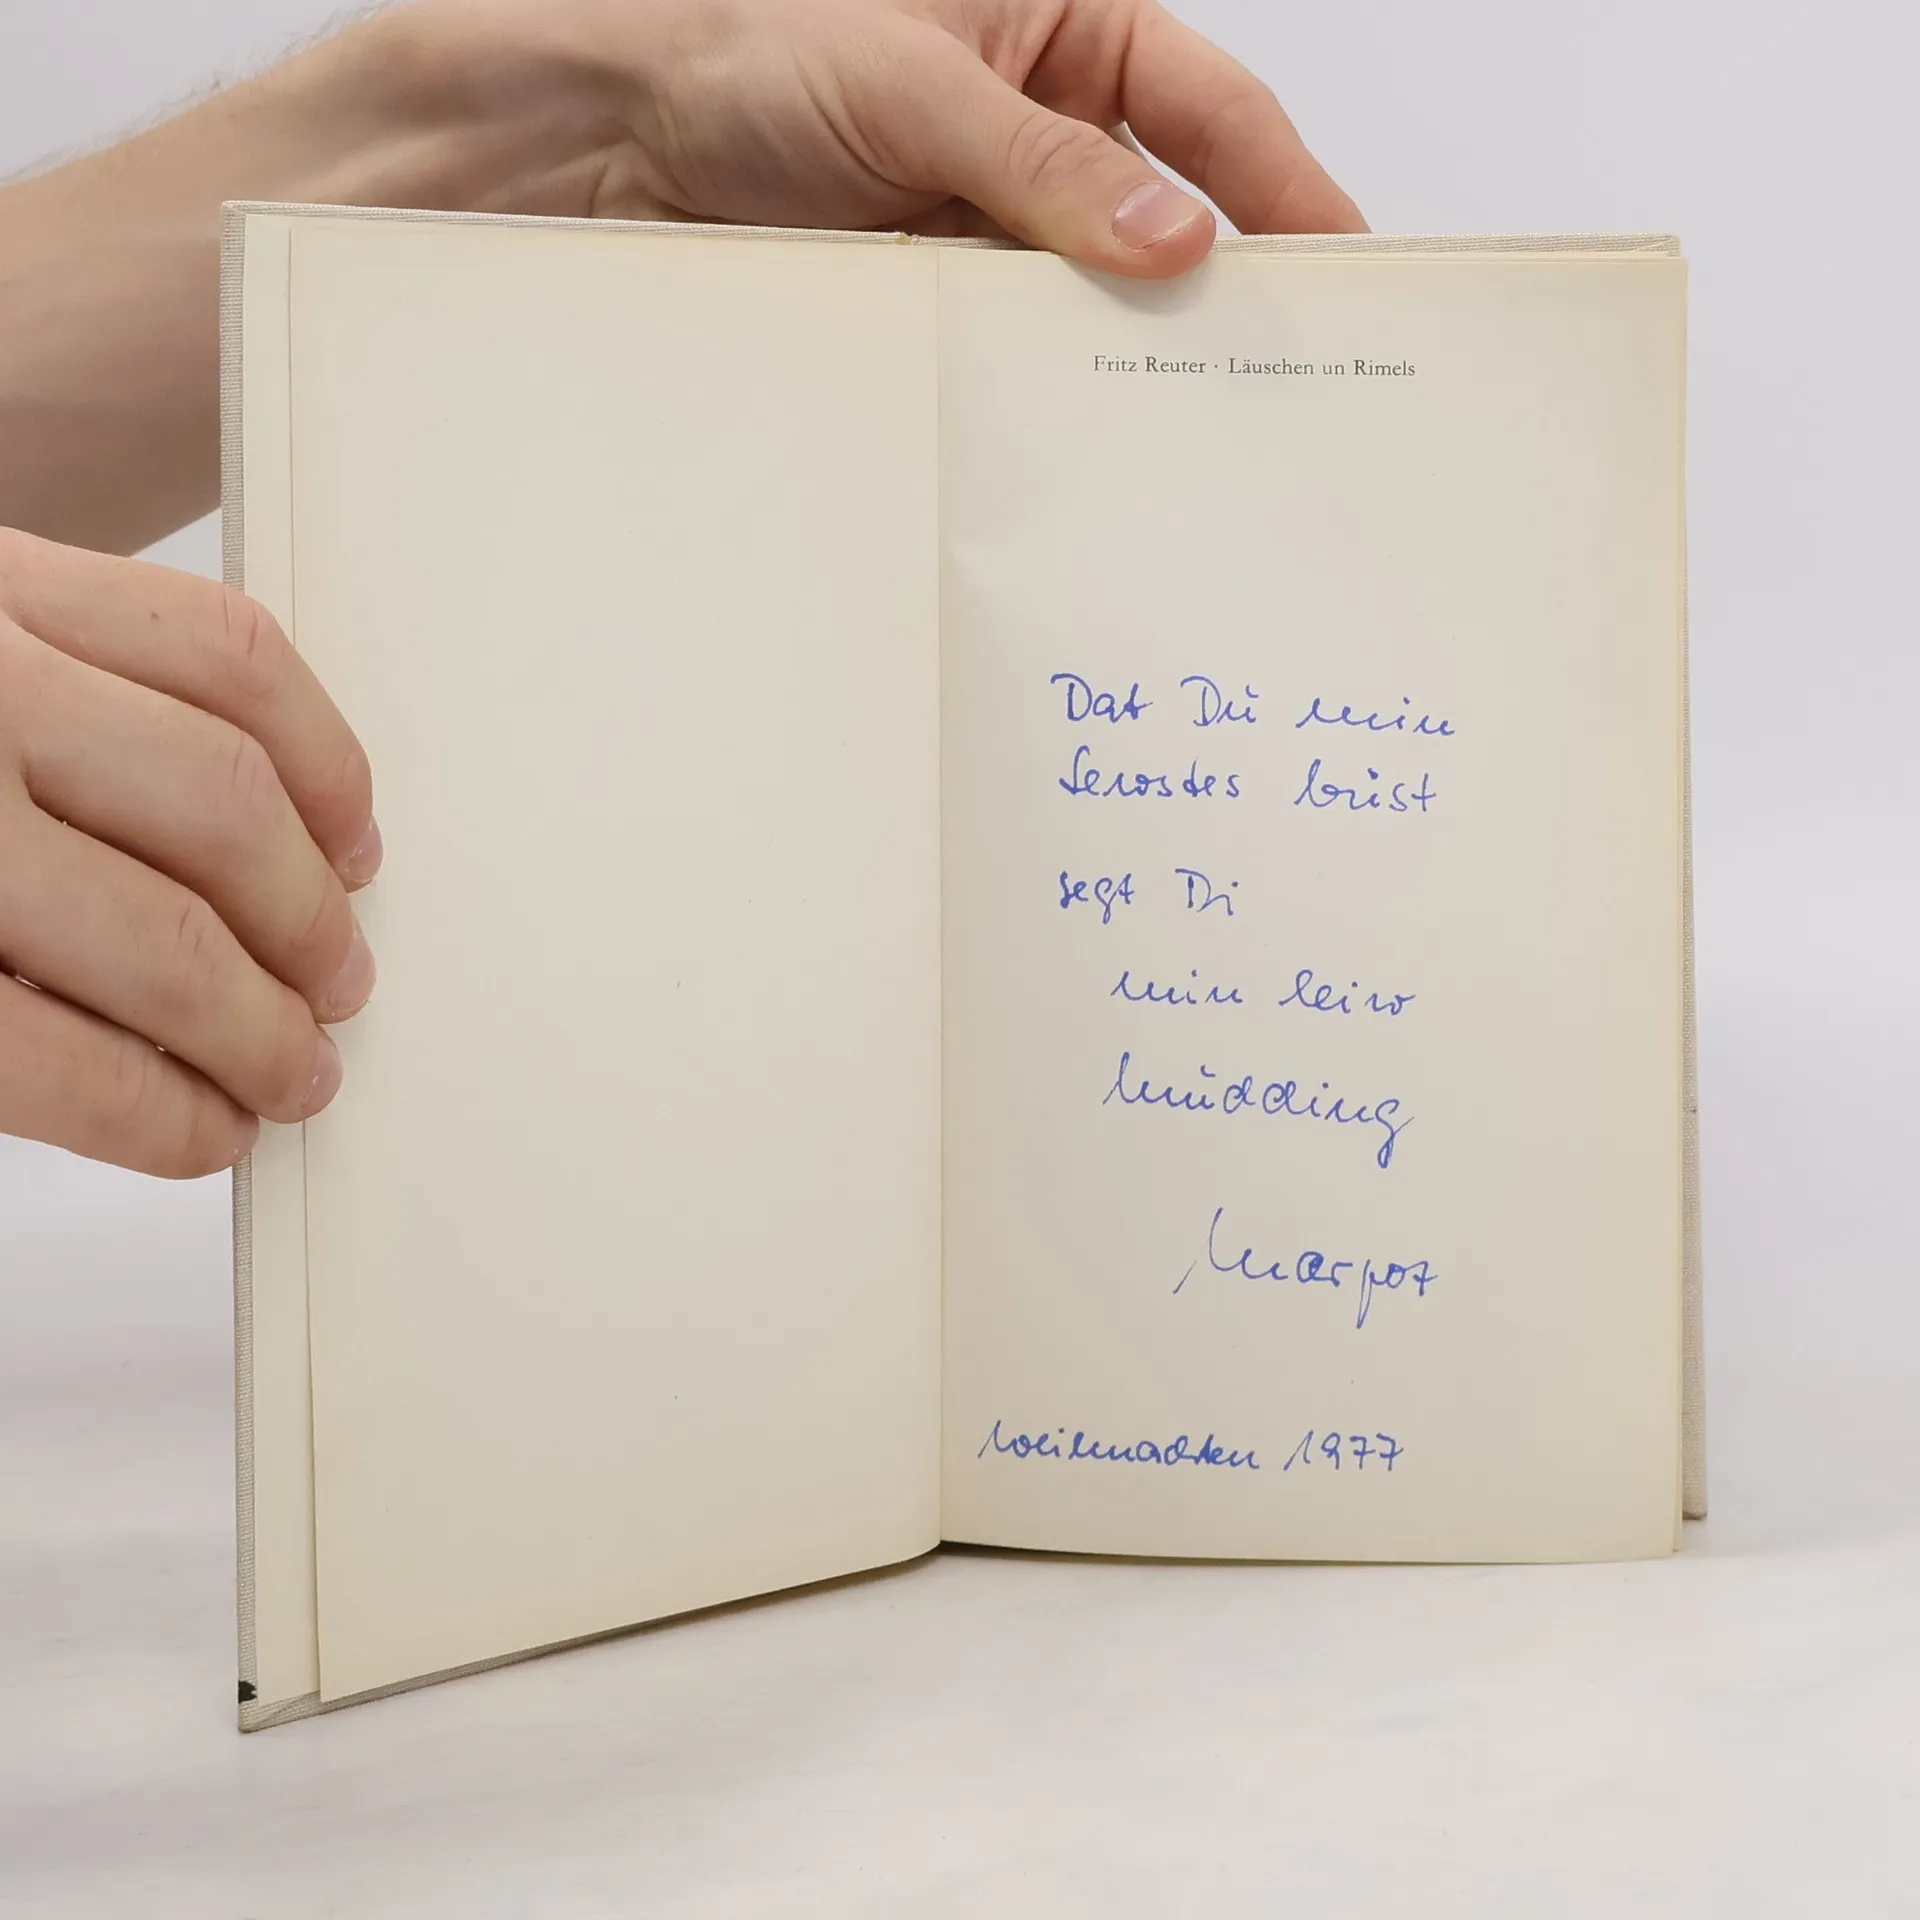 Fritz Reuter · Läuschen un Rimels
Dat Du min
Lewstes büst
segt Di
min leiw
Mudding
Margot
Weihnachten 1977